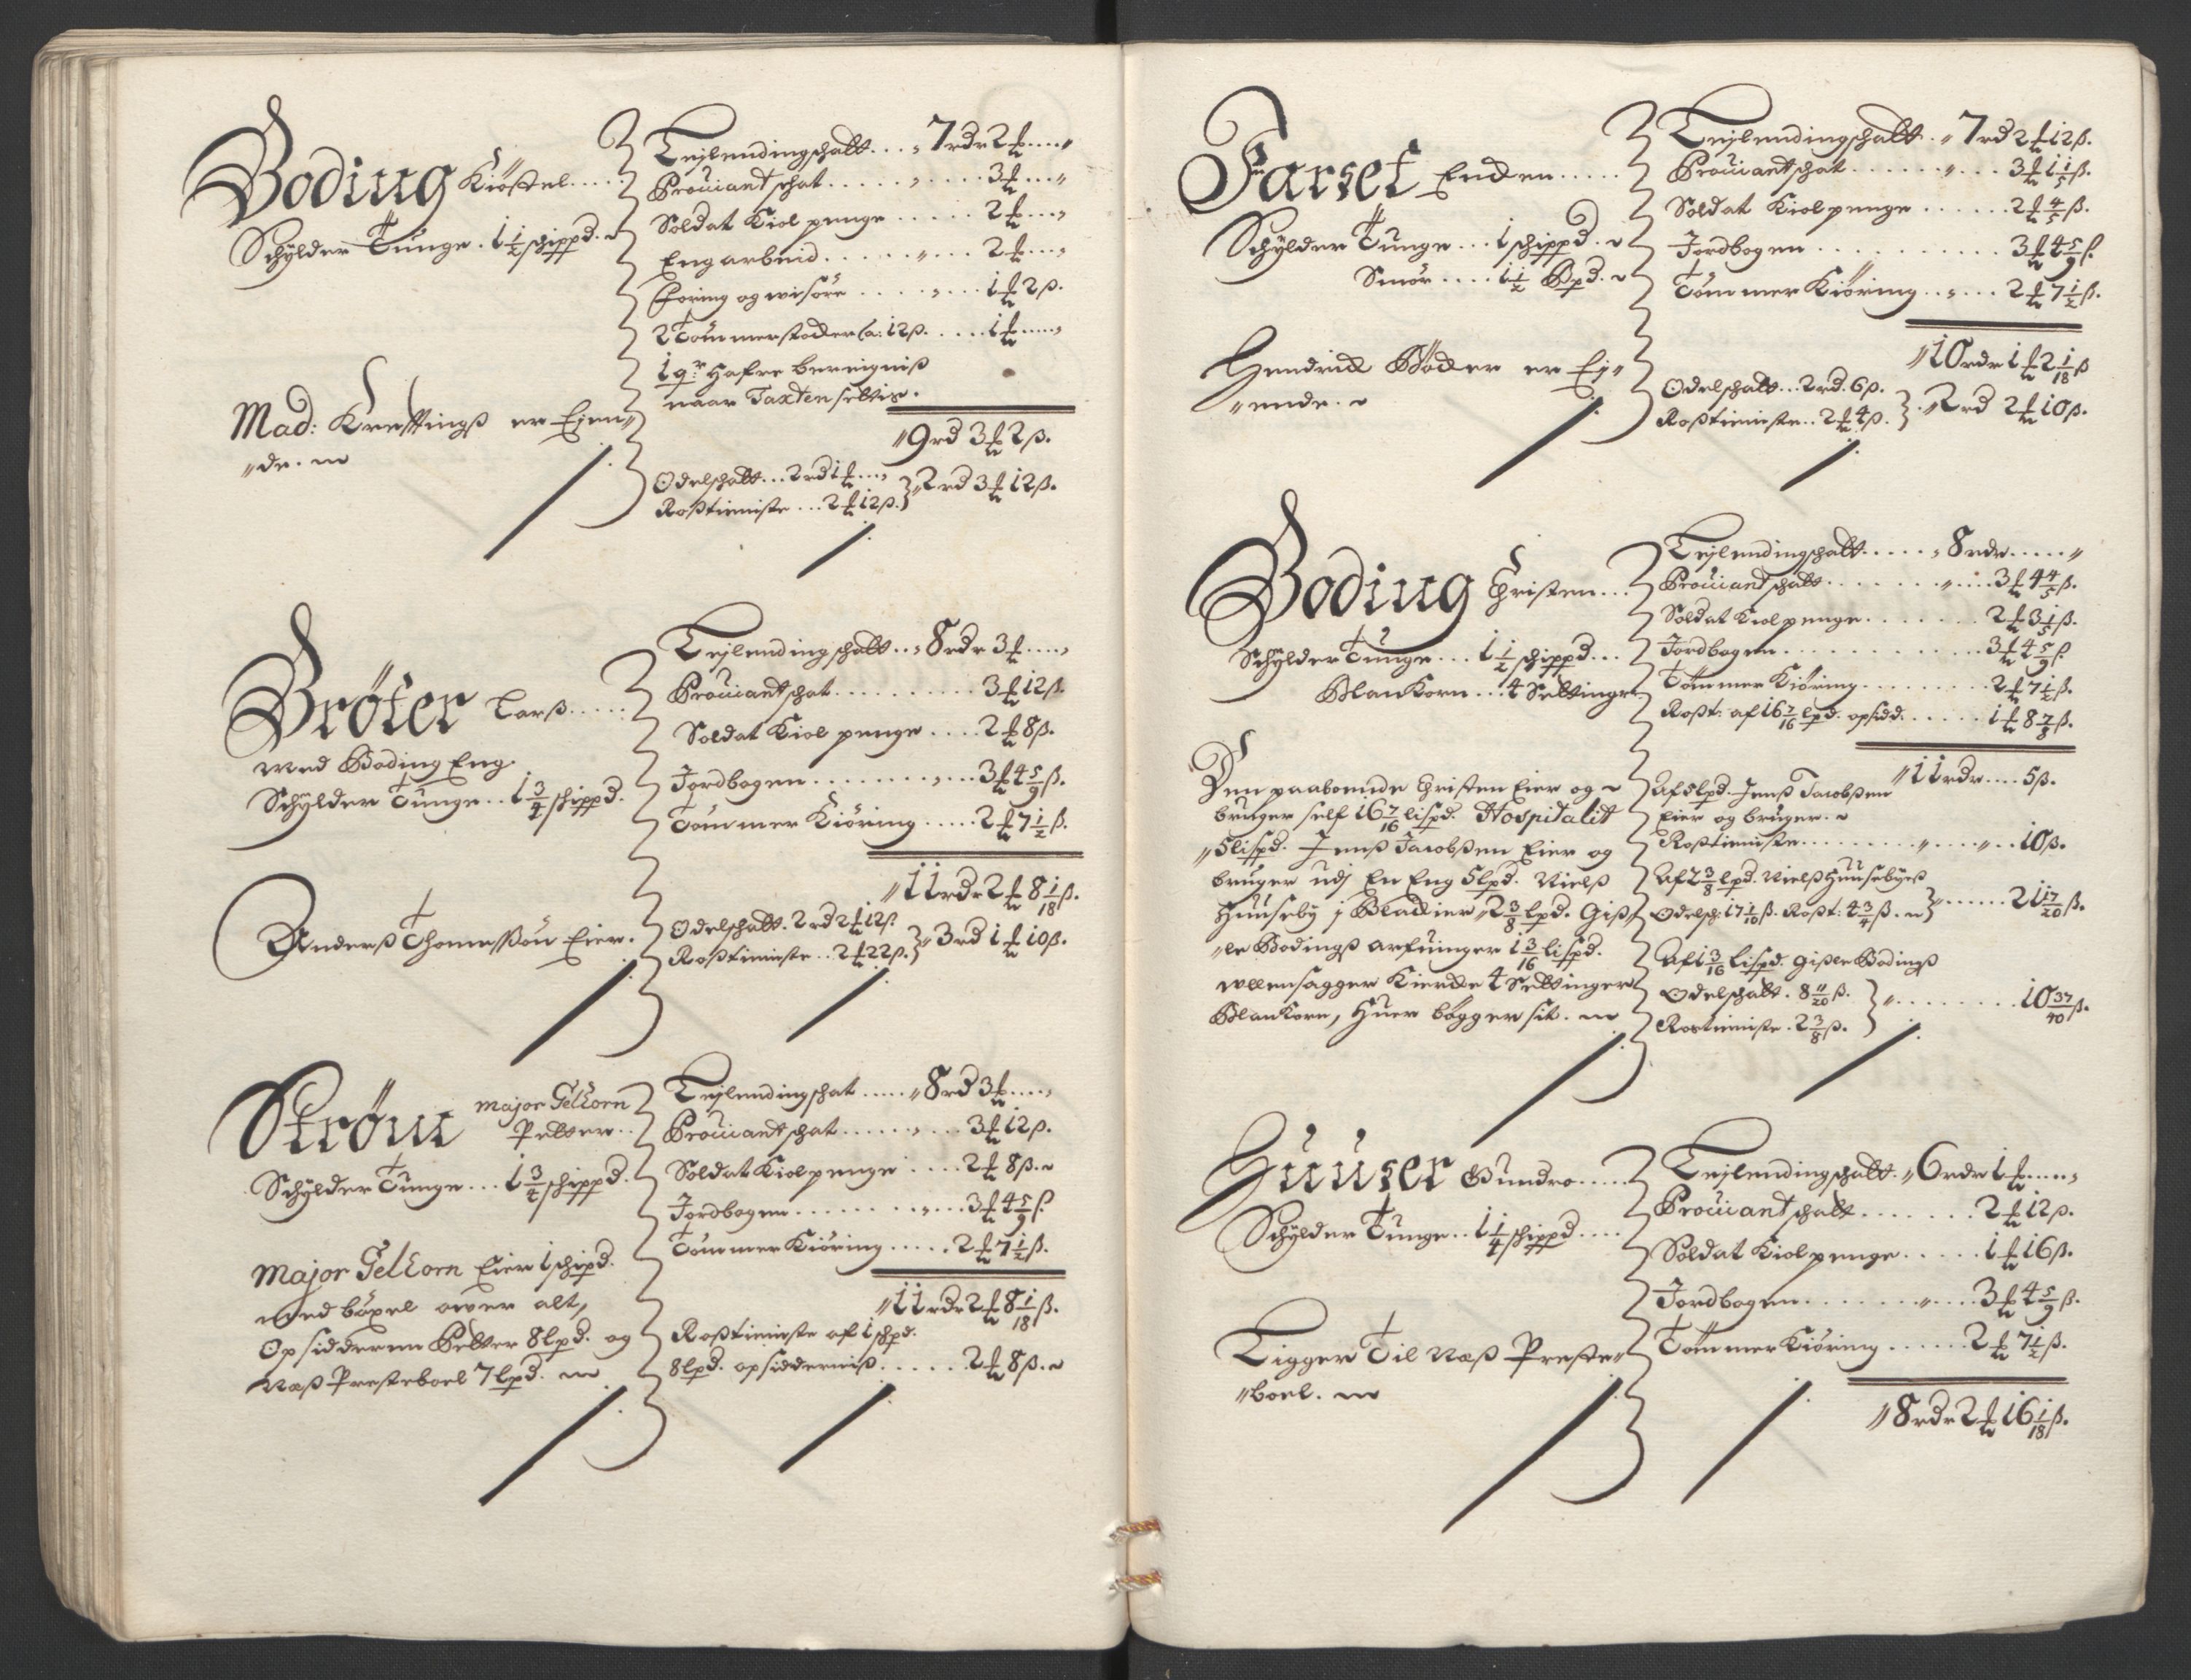 Boding Kiøstel....
Schÿlder Tunge. 1 1/2 schippd.
Mad: Krefftingß er Ejen"
"de.
Lejlendingschatt... " 7 rdr 2 ₶....
Prouiantschat..... " .... 3 ₶...
Soldat Kiol penge ..... 2 ₶...
Eng arbeid..... " ... 2 ₶...
foring og wisøre .... " ... 1 ₶ 2 ß.
2 Tømmerstocker (a: 12 ß..... 1 ₶....
1 qr: Hafre bereignis
naar Taxten settis.
" 9 rd 3 ₶ 2 ß.
Odelschatt... 2 rd 1 ₶... "
Roßtieniste... 2 ₶ 12 ß. } " 2 rd 3 ₶ 12 ß.
Brøter Larß.....
med Boding Eng.
Schÿlder Tunge.. 1 3/4 schippd.
Anderß Thomeßøn Eier.
Lejlendingschatt... 8 rdr 3 ₶....
Prouiantschat.......... 3 ₶ 12 ß.
Soldat Kiol penge .... 2 ₶ 8 ß.
Jordbogen........ " ... 3 ₶ 4 5/9 ß.
Tømmer Kiøring..... 2 ₶ 7 1/2 ß.
" 11 rdr 2 ₶ 8 1/18 ß.
Odelschatt. 2 rd 2 ₶ 12 ß.
Roßtieniste.. 2 ₶ 22 ß. } " 3 rd 1 ₶ 10 ß.
Strøm Major Gelkorn
Petter..
Schÿlder Tunge... 1 3/4 schippd.
Major Gelkorn Eier 1 schipd.
med bÿxel ower alt,
Opsidderen Petter 8 lpd. og
Næß Presteboel 7 lpd.
Lejlendingschat..... " 8 rd 3 ₶....
Prouiantschat...... " ... 3 ₶ 12 ß.
Soldat Kiolpenge .... 2 ₶ 8 ß.
Jordbogen........ " ... 3 ₶ 4 5/9 ß
Tømmer Kiøring..... 2 ₶ 7 1/2 ß.
" 11 rdr 2 ₶ 8 1/18 ß.
Roßtieniste af 1 schpd.
8 lpd. opsidderniß..... 2 ₶ 8 ß.
Farset Enden.....
Schÿlder Tunge... 1 schippd.
Smør.... 1 1/2 Bpd.
Hendrick Bøcker er Ej"
"ende.
Lejlendingschatt.. " 7 rd 2 ₶ 12 ß.
Prouiantschat...... " ... 3 ₶ 1 1/5 ß.
Soldat Kiolpenge ...... 2 ₶ 4/5 ß.
Jordbogen.......... 3 ₶ 4 5/9 ß.
Tømmer Kiøring.. " ... 2 ₶ 7 1/2 ß.
" 10 rdr 1 ₶ 2 1/18 ß
Odelschatt... 2 rd. 6 ß.
Roßtieniste.. 2 ₶ 4 ß. } " 2 rd 2 ₶ 10 ß.
Boding Christen...
Schÿlder Tunge... 1 1/2 schippd...
Blankorn... 4 Settinger
Den paaboende Christen Eier og
bruger self 16 7/16 lispd. Hospitalit
" 5 lispd. Jenß Jacobßen Eier og
bruger udj En Eng 5 lpd. Nielß
Huuseby i Blackier " 2 3/8 lpd. Giß"
"le Bodingß arfuinger 1 3/16 lispd.
Ullensagger Kiercke 4 Settinger
Blankorn, Huer bøgger sit.
Lejlendingschatt..... " 8 rdr.....
Prouiantschatt....... " ... 3 ₶ 4 4/5 ß.
Soldat Kiolpenge....... 2 ₶ 3 1/5 ß.
Jordbogen............ 3 ₶ 4 5/9 ß
Tømmer Kiøring......... 2 ₶ 7 1/2 ß.
Roßt: af 16 7/16 lpd. opsidd...... 1 ₶ 8 7/8 ß.
" 11 rdr.... 5 ß.
Af 5 lpd. Jenß Jacobßen
Eier og bruger.
Roßtieniste........ " .... " .. 10 ß.
Af 2 3/8 lpd. Nielß Huusebyeß
Odelsch: 17 1/10 ß. Roßt: 4 3/4 ß. } " ...... 21 17/20 ß.
Af 1 3/16 lispd. Gißle Bodingß
Odelschatt. 8 11/20 ß.
Rostieniste. 2 3/8 ß. } " ........ 10 37/40 ß.
Huuser Gundro.....
Schÿlder Tunge.. 1 1/4 schippd....
Ligger Til Næß Preste"
"boel.
Lejlendingschatt. " 6 rdr 1 ₶....
Prouiantschatt....... 2 ₶ 12 ß.
Soldat Kiolpenge..... 1 ₶ 16 ß.
Jordbogen....... " .... 3 ₶ 4 5/9 ß.
Tømmer Kiøring...... 2 ₶ 7 1/2 ß.
" 8 rdr 2 ₶ 16 1/18 ß.